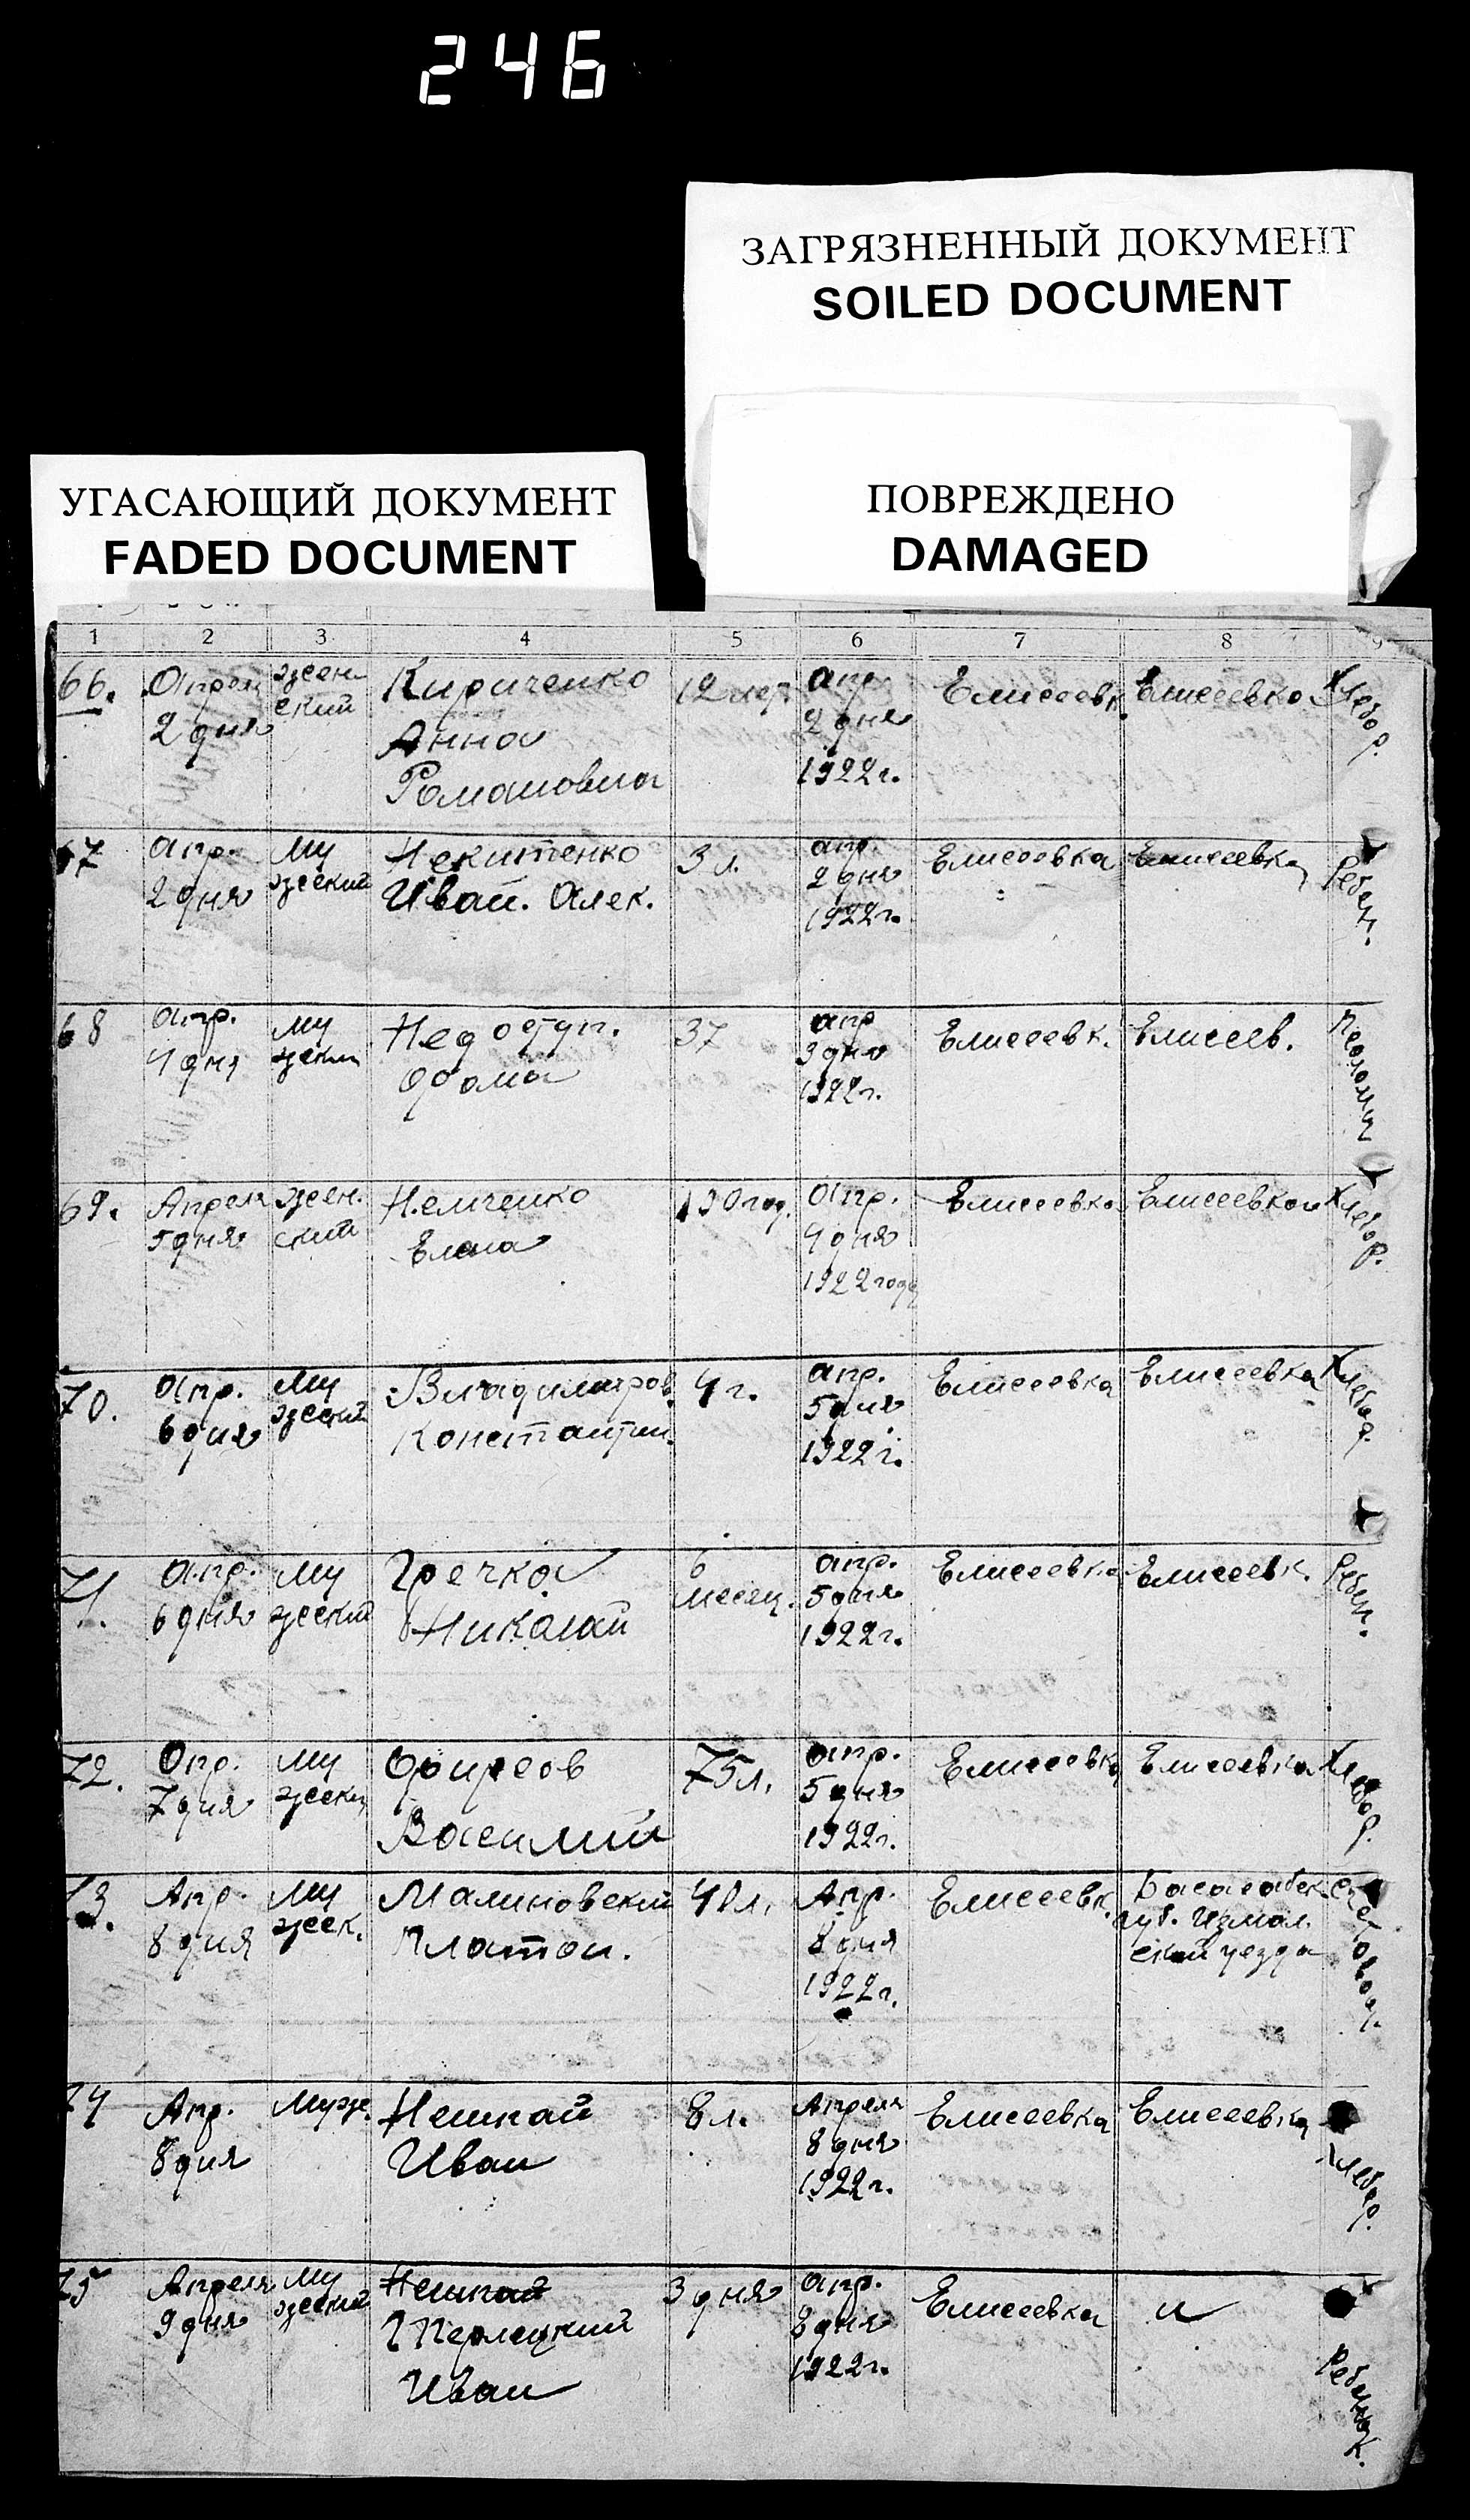 246
ЗАГРЯЗНЕННЫЙ ДОКУМЕНТ
SOILED DOCUMENT
УГАСАЮЩИЙ ДОКУМЕНТ
FADED DOCUMENT
ПОВРЕЖДЕНО
DAMAGED
1 2 3 4 5 6 7 8 9
66. Апреля женский Кириченко 12 лет. апр. Елисеевк. Елисеевка Хлебор.
2 дня Анна 2 дня
Романовна 1922 г.
67 апр. му Некитенко 3 л. апр. Елисеевка Елисеевка Ребен.
2 дня жеский Иван. Алек. 2 дня
1922 г.
68 апр. му 37 апр Елисеевк. Елисеев.
4 дня Фома 3 дня
1922 г.
69. Апреля жен. Немченко Апр. Елисеевка Елисеевка Хлебор.
5 дня ский Елена 4 дня
1922 году
70. апр. му Владимиров. 4 г. апр. Елисеевка Елисеевка Хлебор.
6 дня жеский Константин. 5 дня
1922 г.
71. апр. му Гречка 6 апр. Елисеевка Елисеевк. Ребен.
6 дня жеский Николай месяц. 5 дня
1922 г.
72. Апр. му Фирсов 75 л. апр. Елисеевка Елисеевка Хлебор.
7 дня жеский Василий 5 дня
1922 г.
73. Апр. му Малиновский 40 л. Апр. Елисеевк.
8 дня жеск. Платон. 8 дня губ. Измаил
1922 г. ский уезда
74 Апр. Муже. Нешкай 8 л. Апреля Елисеевка Елисеевка Хлебор.
8 дня Иван 8 дня
1922 г.
75 Апреля му Нешкай 3 дня апр. Елисеевка и Ребенок.
9 дня жеский 8 дня
Иван 1922 г.